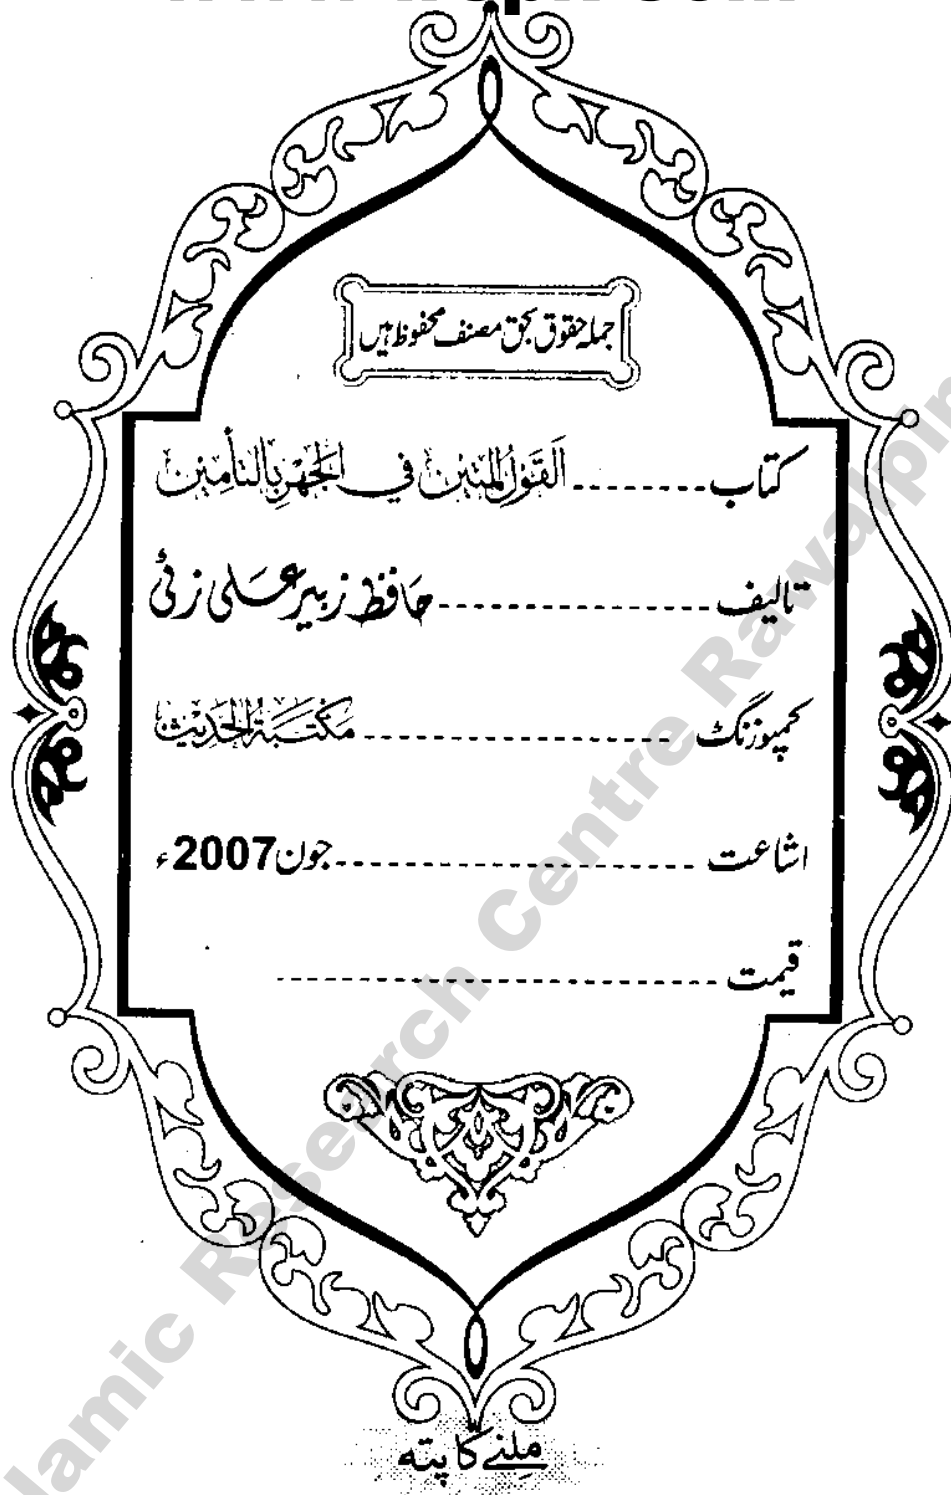 جملہ حقوق بحق مصنف محفوظ ہیں
کتاب -------- اَلْقَوْلُ الْمَتِيْن فِي الْجَهْرِ بِالتَّأْمِيْن
تالیف ---------------- حافظ زبیر علی زئی
کمپوزنگ ------------------ مَكْتَبَةُ الْحَدِيْث
اشاعت -------------------- جون 2007ء
قیمت ------------------------
ملنے کا پتہ
lamic Research Centre Rawalpin